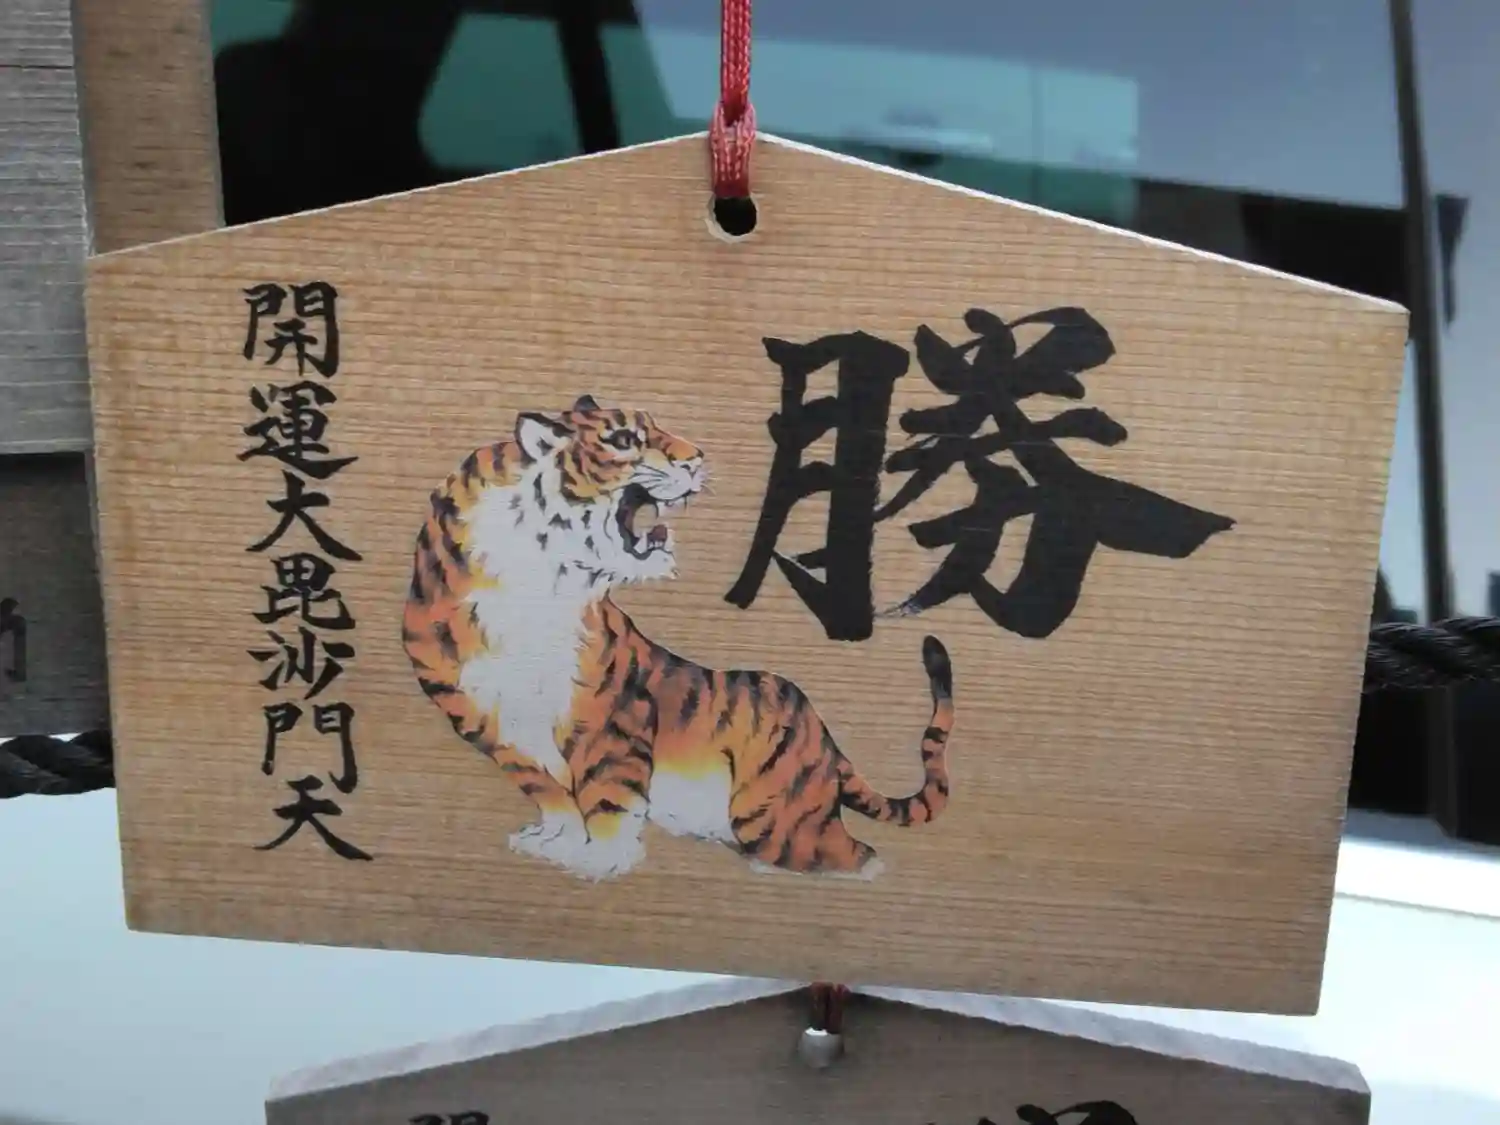 勝
開運大毘沙門天
開